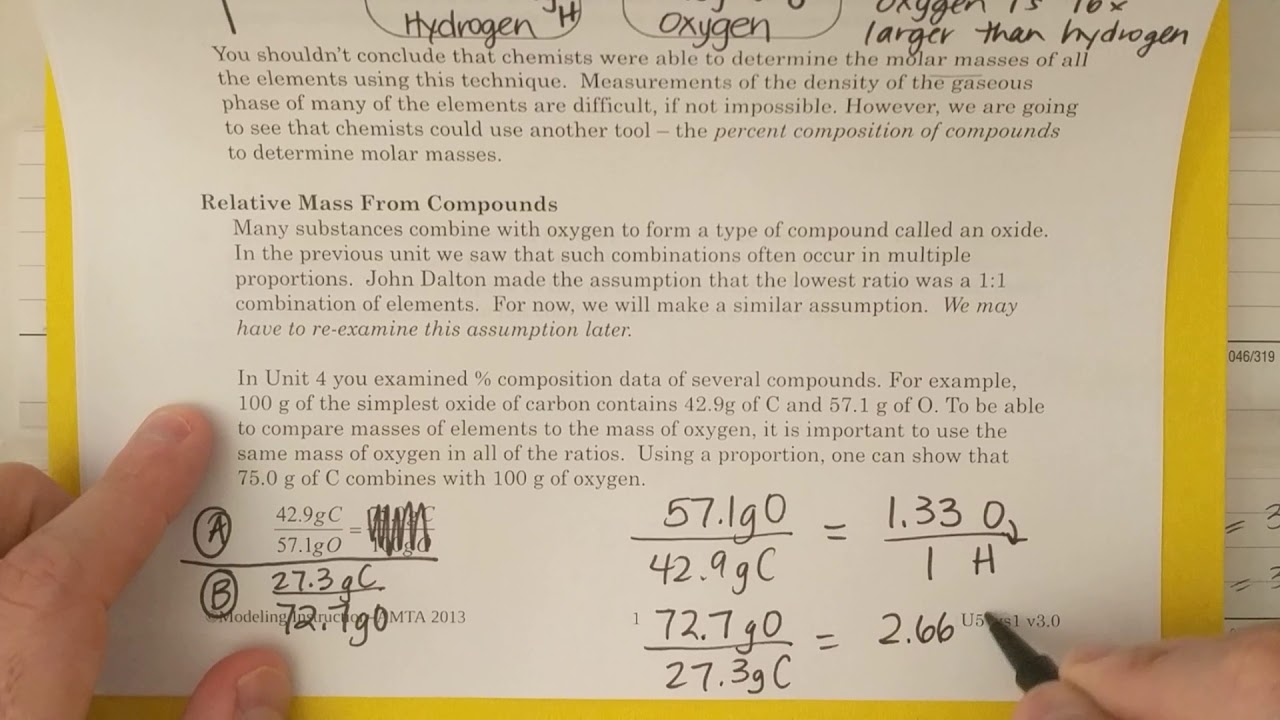 Hydrogen H
Oxygen
oxygen is 16x
larger than hydrogen
You shouldn't conclude that chemists were able to determine the molar masses of all
the elements using this technique. Measurements of the density of the gaseous
phase of many of the elements are difficult, if not impossible. However, we are going
to see that chemists could use another tool – the percent composition of compounds
to determine molar masses.
Relative Mass From Compounds
Many substances combine with oxygen to form a type of compound called an oxide.
In the previous unit we saw that such combinations often occur in multiple
proportions. John Dalton made the assumption that the lowest ratio was a 1:1
combination of elements. For now, we will make a similar assumption. We may
have to re-examine this assumption later.
In Unit 4 you examined % composition data of several compounds. For example,
100 g of the simplest oxide of carbon contains 42.9g of C and 57.1 g of O. To be able
to compare masses of elements to the mass of oxygen, it is important to use the
same mass of oxygen in all of the ratios. Using a proportion, one can show that
75.0 g of C combines with 100 g of oxygen.
A 42.9gC =
57.1gO
B 27.3gC
72.7gO
57.1gO = 1.33 O
42.9gC 1 H
72.7gO = 2.66
27.3gC
©Modeling Instruction AMTA 2013
1
v3.0
046/319
=
=